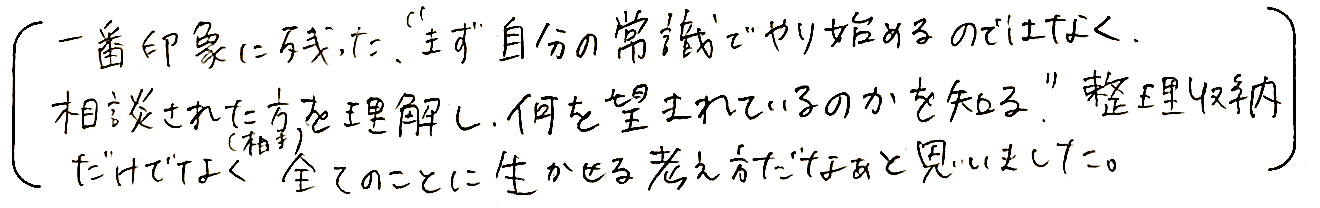 一番印象に残った、“まず自分の常識でやり始めるのではなく、
相談された方を理解し、何を望まれているのかを知る”整理収納
(相手)
だけでなく 全てのことに生かせる考え方だなぁと思いました。